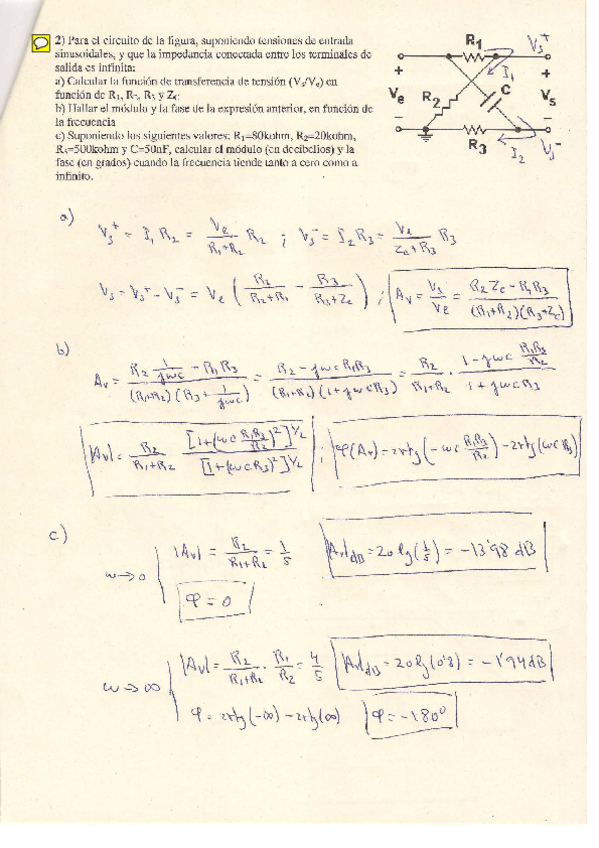 2) Para el circuito de la figura, suponiendo tensiones de entrada
sinusoidales, y que la impedancia conectada entre los terminales de
salida es infinita:
a) Calcular la función de transferencia de tensión (Vs/Ve) en
función de R1, R2, R3 y Zc
b) Hallar el módulo y la fase de la expresión anterior, en función de
la frecuencia
c) Suponiendo los siguientes valores: R1=80kohm, R2=20kohm,
R3=500kohm y C=50nF, calcular el módulo (en decibelios) y la
fase (en grados) cuando la frecuencia tiende tanto a cero como a
infinito.
R1 Vs+
+ I1 +
Ve R2 C Vs
- R3 I2 - Vs-
a) Vs+ = I1 R2 = Ve/(R1+R2) R2 ; Vs- = I2 R3 = Ve/(Zc+R3) R3
Vs = Vs+ - Vs- = Ve (R2/(R2+R1) - R3/(R3+Zc)) ; Av = Vs/Ve = (R2 Zc - R1 R3)/((R1+R2)(R3+Zc))
b) Av = (R2 1/(jwc) - R1 R3)/((R1+R2)(R3 + 1/(jwc))) = (R2 - jwc R1R3)/((R1+R2)(1+jwcR3)) = R2/(R1+R2) · (1 - jwc R1R3/R2)/(1 + jwcR3)
|Av| = R2/(R1+R2) [1+(wc R1R3/R2)²]^1/2/[1+(wcR3)²]^1/2 ; φ(Av) = arctg(-wc R1R3/R2) - arctg(wcR3)
c) w→0 |Av| = R2/(R1+R2) = 1/5 |Av|dB = 20 lg(1/5) = -13'98 dB
φ = 0
w→∞ |Av| = R2/(R1+R2) · R1/R2 = 4/5 |Av|dB = 20 lg(0'8) = -1'94 dB
φ = arctg(-∞) - arctg(∞) φ = -180°